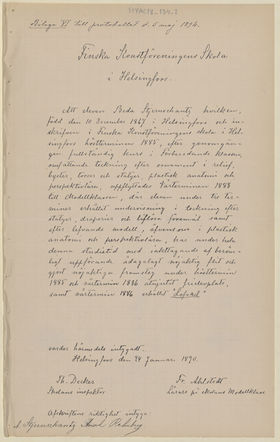 Bilaga VI till protokollet d. 5 maj 1894.
Finska Konstföreningens Skola
i Helsingfors.
Att eleven Beda Stjernschantz, hvilken,
född den 10 December 1867 i Helsingfors och in-
skrifven i Finska Konstföreningens skola i Hel-
singfors höstterminen 1885, efter genomgån-
gen fullständig kurs i förberedande klassen,
omfattande teckning efter ornament i relief,
byster, torsos och statyer, plastisk anatomi och
perspektivlära, uppflyttades vårterminen 1888
till Modellklassen, der eleven under tre ter-
miner erhållit undervisning i teckning efter
statyer, draperier och liflösa föremål samt
efter lefvande modell, äfvensom i plastisk
anatomi och perspektivlära, har under hela
denna studietid med iakttagande af beröm-
ligt uppförande ådagalagt nöjaktig flit och
gjort nöjaktiga framsteg under höstterminen
1885 och vårterminen 1886 åtnjutit frielevsplats,
samt vårterminen 1886 erhållit
varder härmedels intygadt.
Helsingfors den 28 Januari 1890.
Th. Decker Fr. Ahlstedt
Skolans inspektor Lärare på skolans Modellklass.
Afskriftens riktighet intyga: